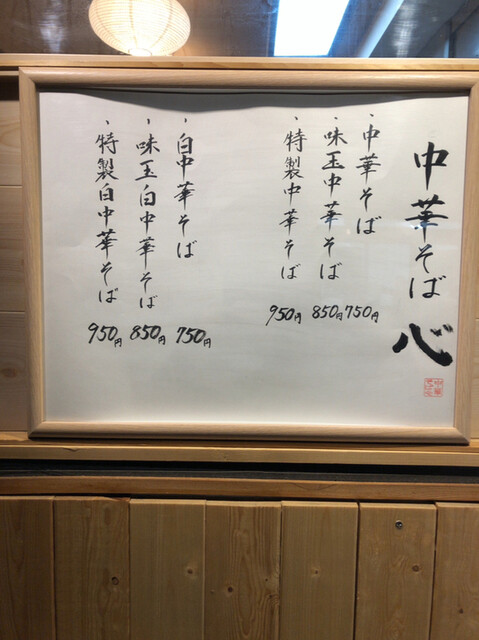 中華そば 心
・中華そば 750円
・味玉中華そば 850円
・特製中華そば 950円
・白中華そば 750円
・味玉白中華そば 850円
・特製白中華そば 950円